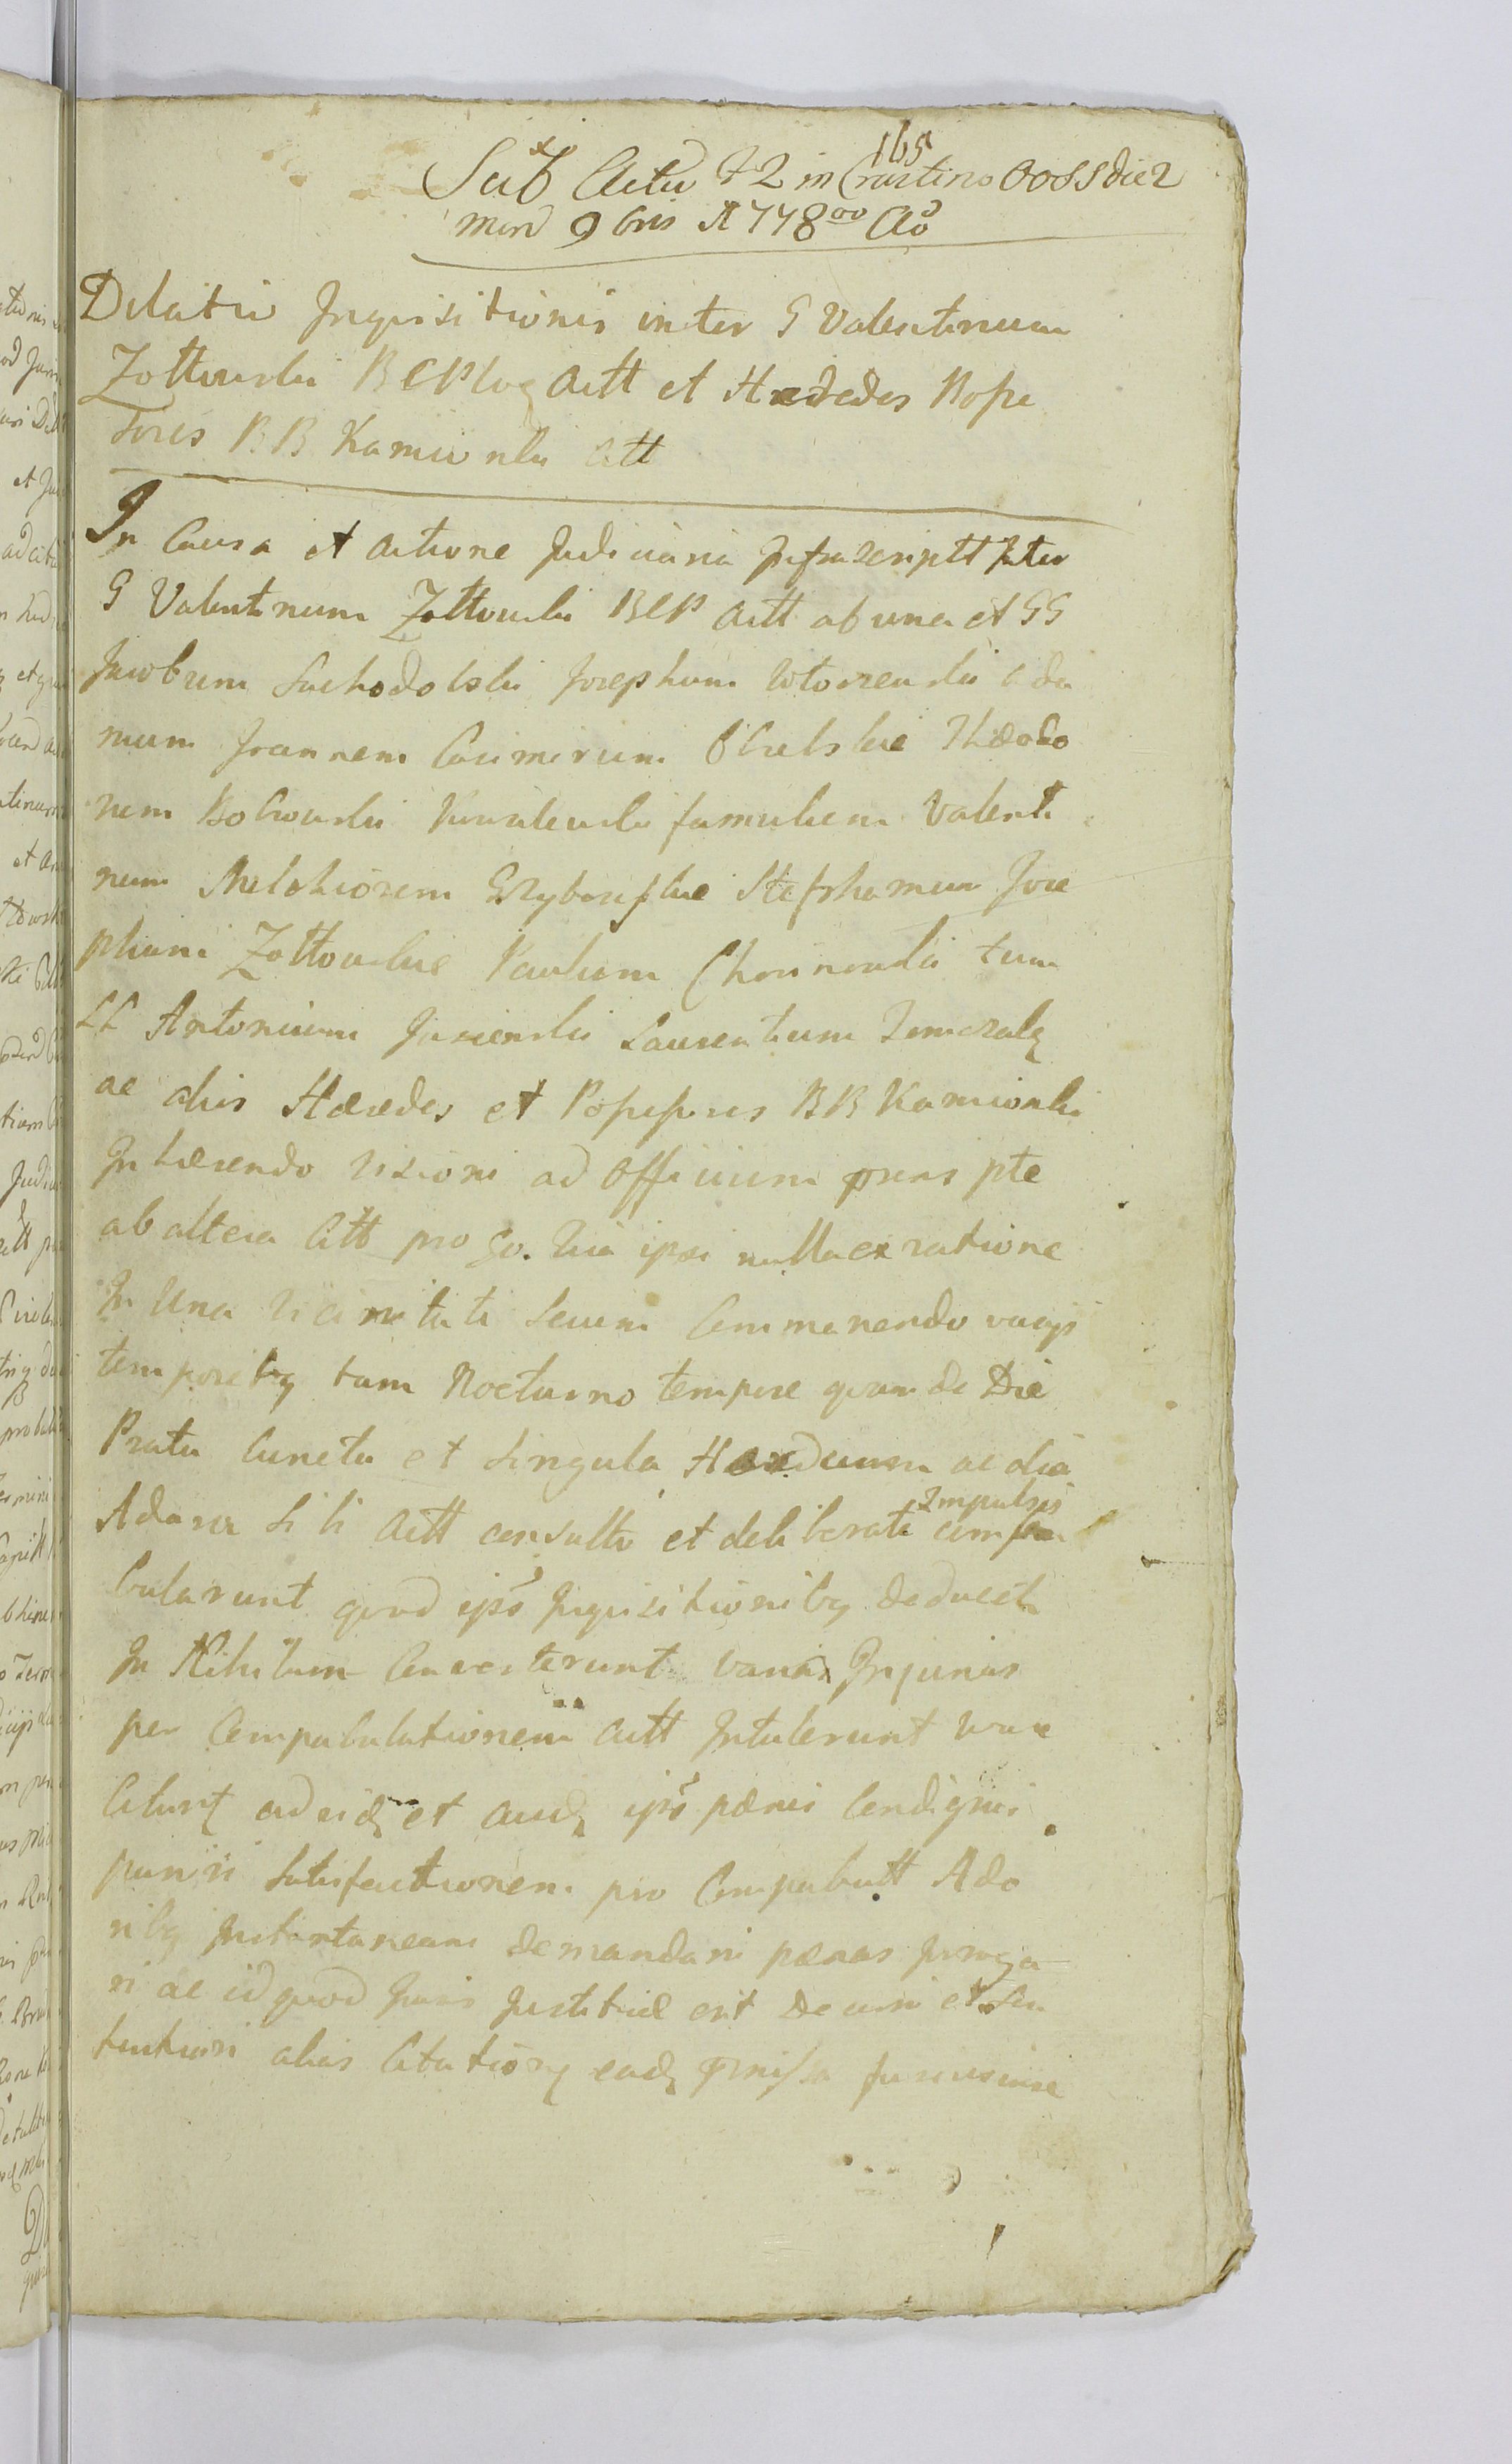 165
Sub Actu f2 in Crastino OOSS die 2
mens 9bris A 778 Ao
Dilatio Inquisitionis inter G Valentinum
Zottowski BCP Actt et Hæredes Posse
sores BB Kamionki Citt
In Causa et Actione Judiciaria Infrascriptt Inter
G Valentinum Zottowski BCP Actt ab una et GG
Jacobum Suchodolski Josephum Ada
mum Joannem Casimirum Theodo
rum famulum Valenti
num Melchiorem Stephanum Jose
phum Zottowskie Paulum tum
LL Antonium Laurentium
ac alios Hæredes et Possessores BB Kamionki
Inhærendo ad Officium præs pte
ab altera Citt pro eo. Quia ipsi nulla ex ratione
In Una Vicinitate Secum Commanendo varys
temporibq tam Nocturno tempore quam de Die
Prata Cuncta et Singula Hæreduum ac alia
Adava Sibi Actt consulto et deliberate Impulsis compa
bularunt quod ipso Inquisitionibq deducet
In Nihilum Converterunt varias Injurias
per Compabulationem Actt Intulerunt
Citant ad id et ipso pænis Condignis
puniri Satisfactionem pro Compabultt Ada
ribq Instantaneam demandari pænas Irroga
ri ac id quod Juris Justitiæ erit Decerni et Sen
tentiari alias Citatione eadq